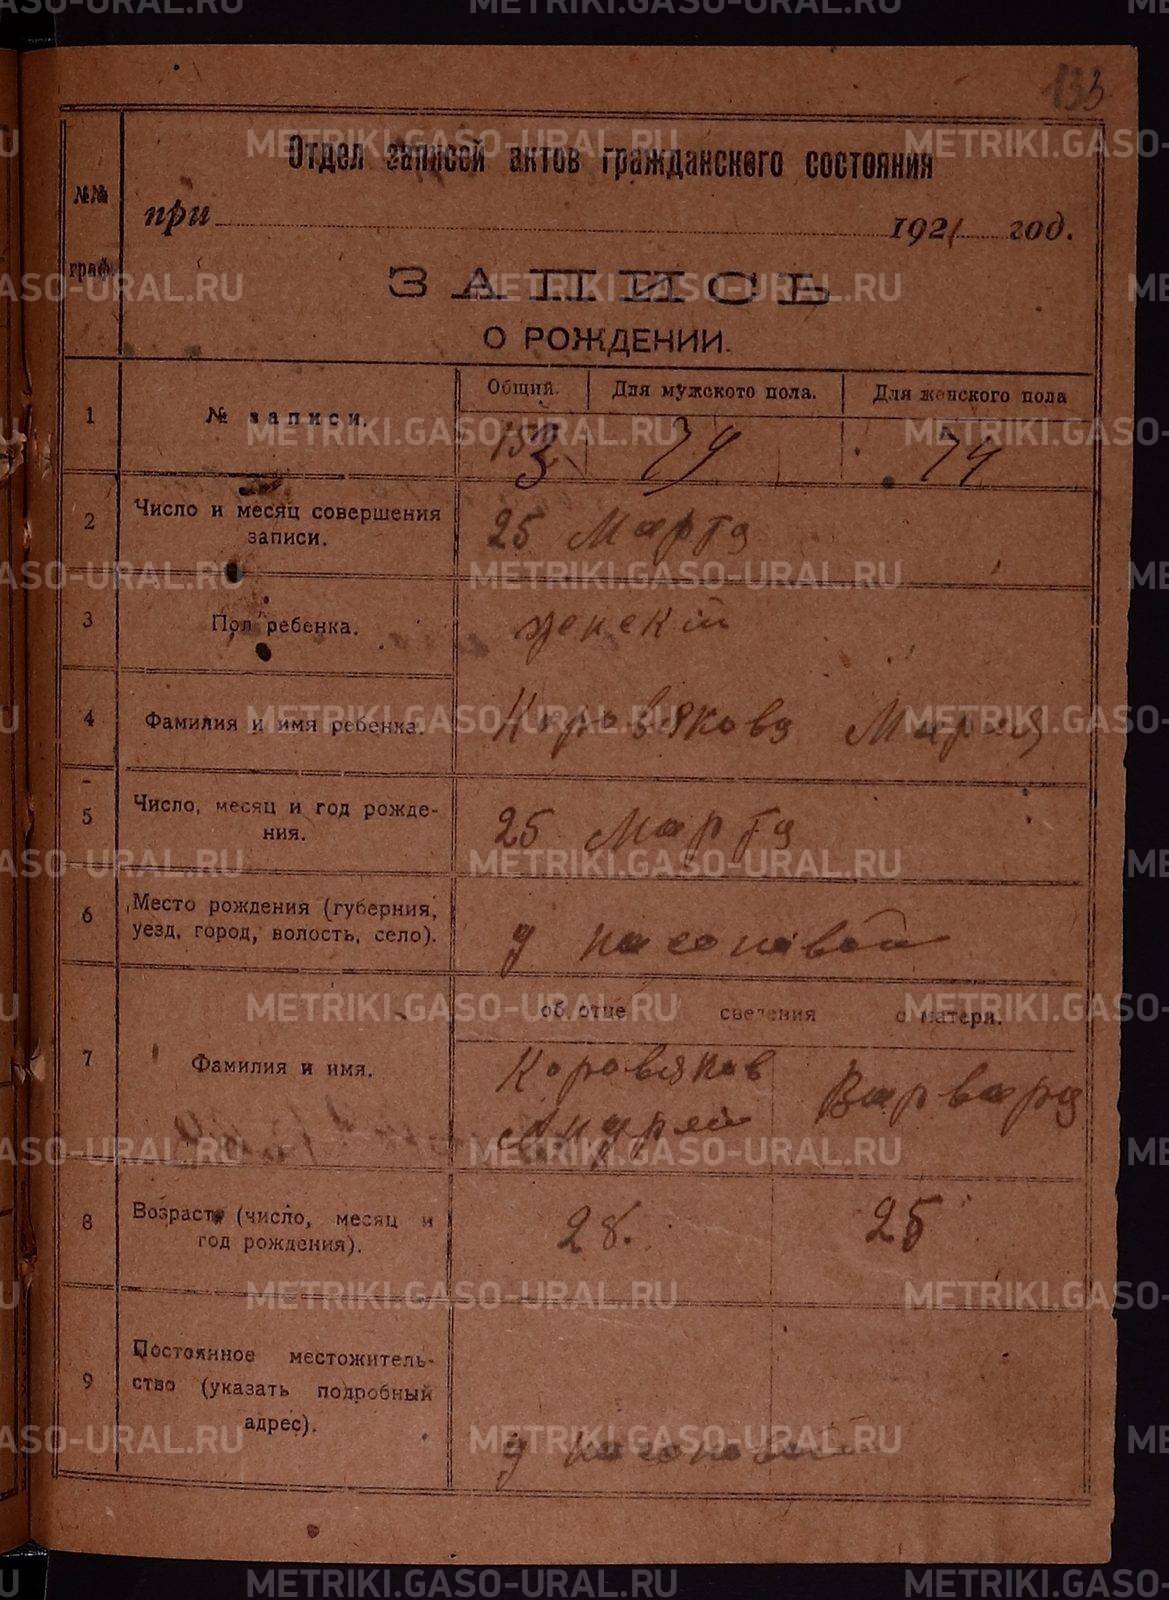 133
Отдел записей актов гражданского состояния
при 1921 год.
№№ граф
ЗАПИСЬ
О РОЖДЕНИИ.
Общий. Для мужского пола. Для женского пола
1 № записи. 153 79 74
2 Число и месяц совершения
записи.
25 Марта
3 Пол ребенка. женский
4 Фамилия и имя ребенка. Коровякова Мария
5 Число, месяц и год рожде-
ния.
25 Марта
6 Место рождения (губерния,
уезд, город, волость, село).
д
об отце сведения о матери.
7 Фамилия и имя.
Коровяков Варвара
Андрей
8 Возраст (число, месяц и
год рождения).
28. 25
9 Постоянное местожитель-
ство (указать подробный
адрес).
д
METRIKI.GASO-URAL.RU